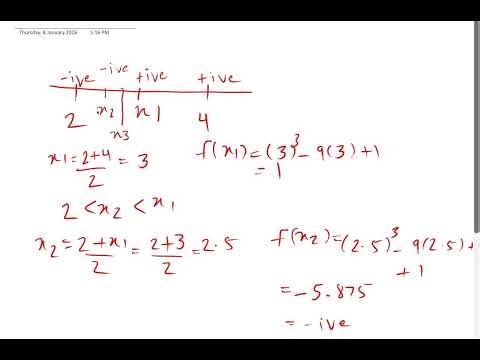 Thursday, 8 January 2026 5:16 PM
-ive -ive +ive +ive
2 x2 x3 x1 4
x1 = 2+4/2 = 3
f(x1) = (3)^3 - 9(3) + 1
= 1
2 < x2 < x1
x2 = 2+x1/2 = 2+3/2 = 2.5
f(x2) = (2.5)^3 - 9(2.5) +
+ 1
= -5.875
= -ive